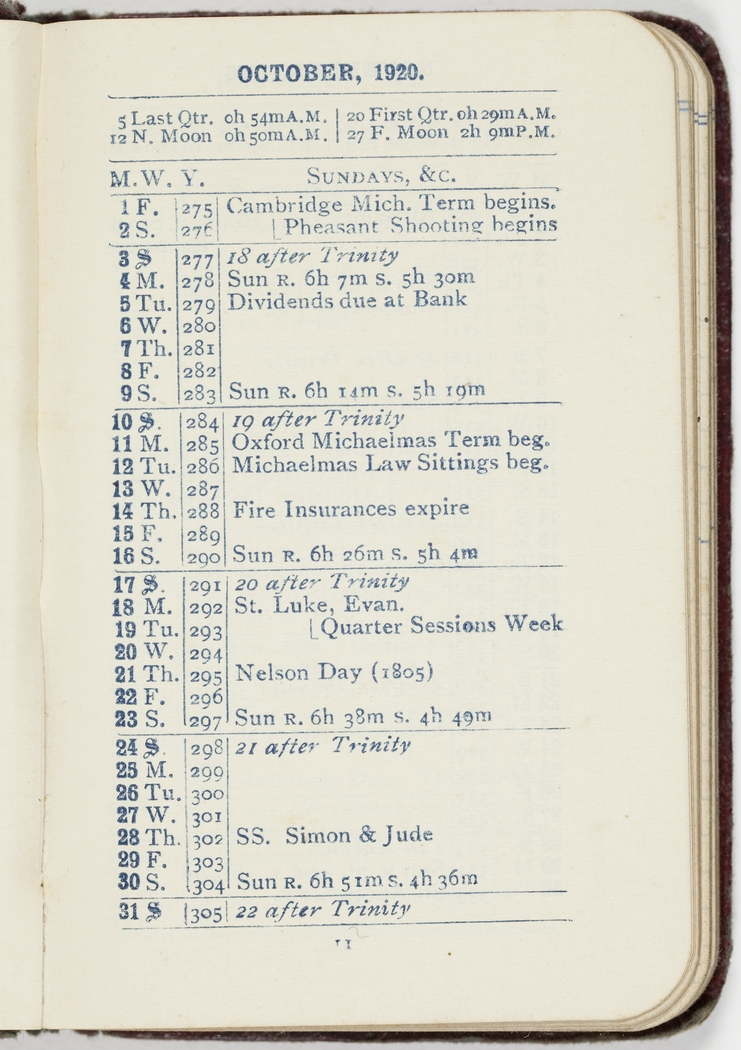 OCTOBER, 1920.
5 Last Qtr. 0h 54m A.M. | 20 First Qtr. 0h 29m A.M.
12 N. Moon 0h 50m A.M. | 27 F. Moon 2h 9m P.M.
M. W. Y. SUNDAYS, &C.
1 F. 275 Cambridge Mich. Term begins.
2 S. 276 [Pheasant Shooting begins
3 S 277 18 after Trinity
4 M. 278 Sun R. 6h 7m s. 5h 30m
5 Tu. 279 Dividends due at Bank
6 W. 280
7 Th. 281
8 F. 282
9 S. 283 Sun R. 6h 14m s. 5h 19m
10 S. 284 19 after Trinity
11 M. 285 Oxford Michaelmas Term beg.
12 Tu. 286 Michaelmas Law Sittings beg.
13 W. 287
14 Th. 288 Fire Insurances expire
15 F. 289
16 S. 290 Sun R. 6h 26m s. 5h 4m
17 S. 291 20 after Trinity
18 M. 292 St. Luke, Evan.
19 Tu. 293 [Quarter Sessions Week
20 W. 294
21 Th. 295 Nelson Day (1805)
22 F. 296
23 S. 297 Sun R. 6h 38m s. 4h 49m
24 S. 298 21 after Trinity
25 M. 299
26 Tu. 300
27 W. 301
28 Th. 302 SS. Simon & Jude
29 F. 303
30 S. 304 Sun R. 6h 51m s. 4h 36m
31 S 305 22 after Trinity
11